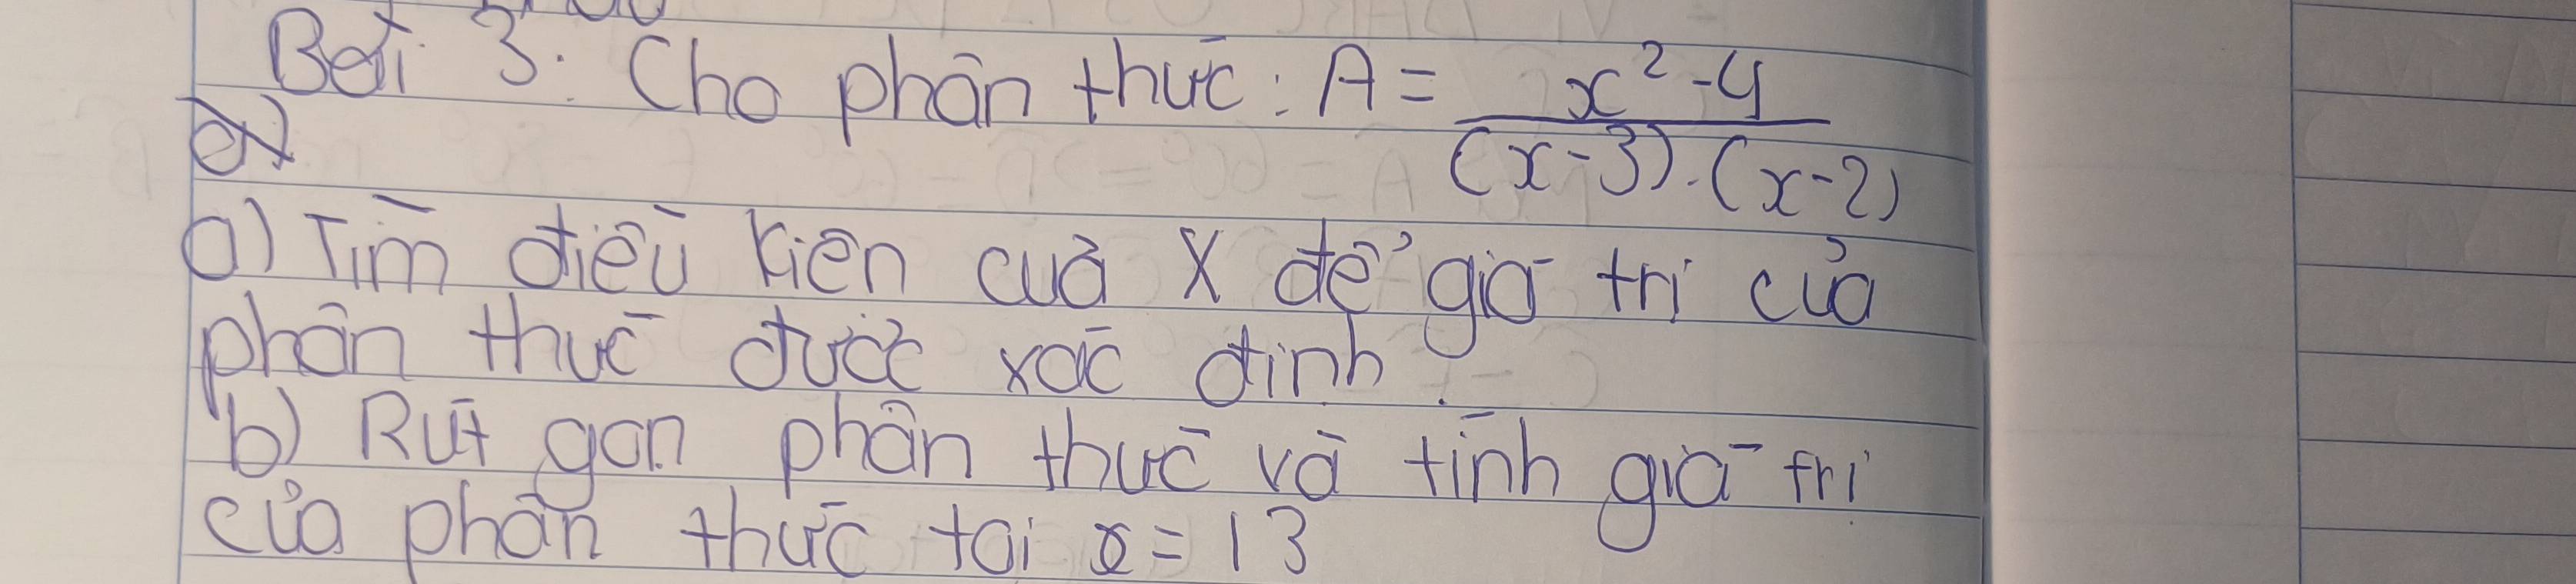 Bài 3: Cho phân thức: A = \frac{x²-4}{(x-3).(x-2)}
a) Tìm điều kiện của x để giá trị của
phân thức được xác định.
b) Rút gọn phân thức và tính giá trị
của phân thức tại x = 13